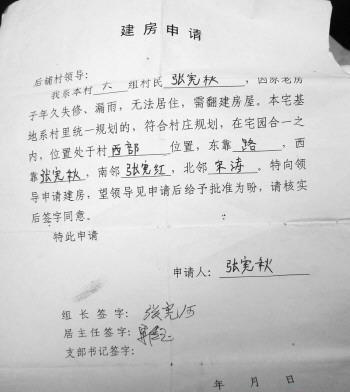 建房申请
后铺村领导：
我系本村 六 组村民 张宪秋 ，因原老房
子年久失修、漏雨，无法居住，需翻建房屋。本宅基
地系村里统一规划的，符合村庄规划，在宅园合一之
内，位置处于村 西部 位置，东靠 路 ，西
靠 张宪秋 ，南邻 张宪红 ，北邻 宋涛 。特向领
导申请建房，望领导见申请后给予批准为盼，请核实
后签字同意。
特此申请
申请人：张宪秋
组长签字：张宪河
居主任签字：
支部书记签字：
年 月 日